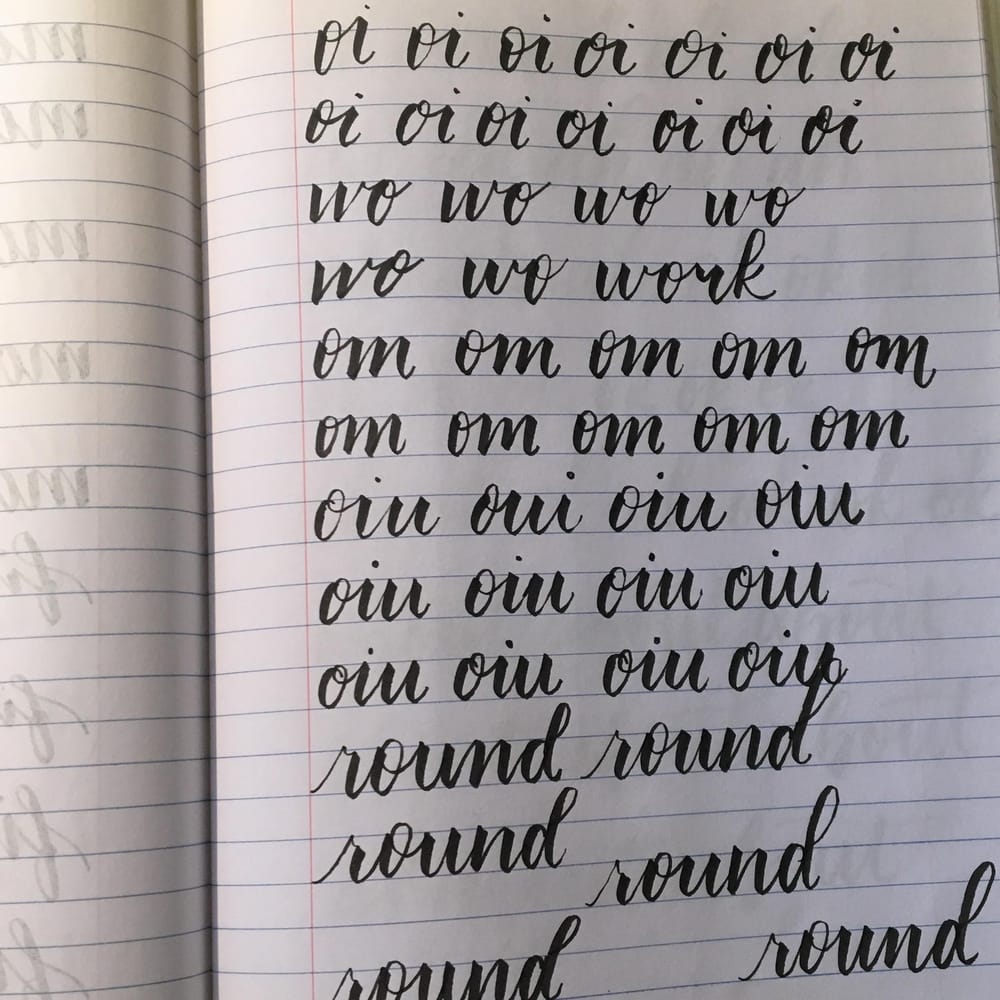 oi oi oi oi oi oi oi
oi oi oi oi oi oi oi
wo wo wo wo
wo wo work
om om om om om
om om om om om
oiu oui oiu oiu
oiu oiu oiu oiu
oiu oiu oiu oiu
round round
round round
round round